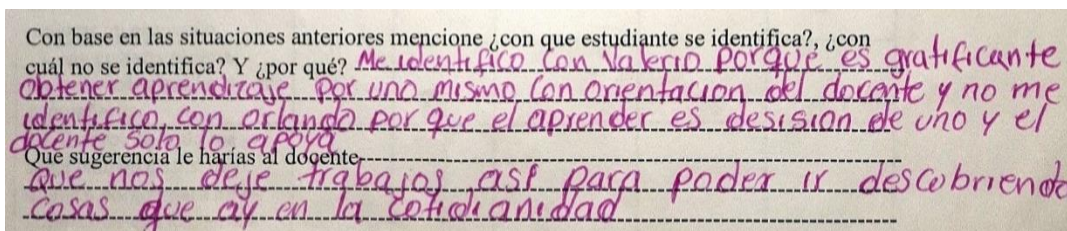 Con base en las situaciones anteriores mencione ¿con que estudiante se identifica?, ¿con
cuál no se identifica? Y ¿por qué? Me identifico con Valerio porque es gratificante
obtener aprendizaje por uno mismo con orientacion del docente y no me
identifico con orlando por que el aprender es desision de uno y el
docente solo lo apoya
Que sugerencia le harías al docente
Que nos deje trabajos así para poder ir descobriendo
cosas que ay en la cotidianidad